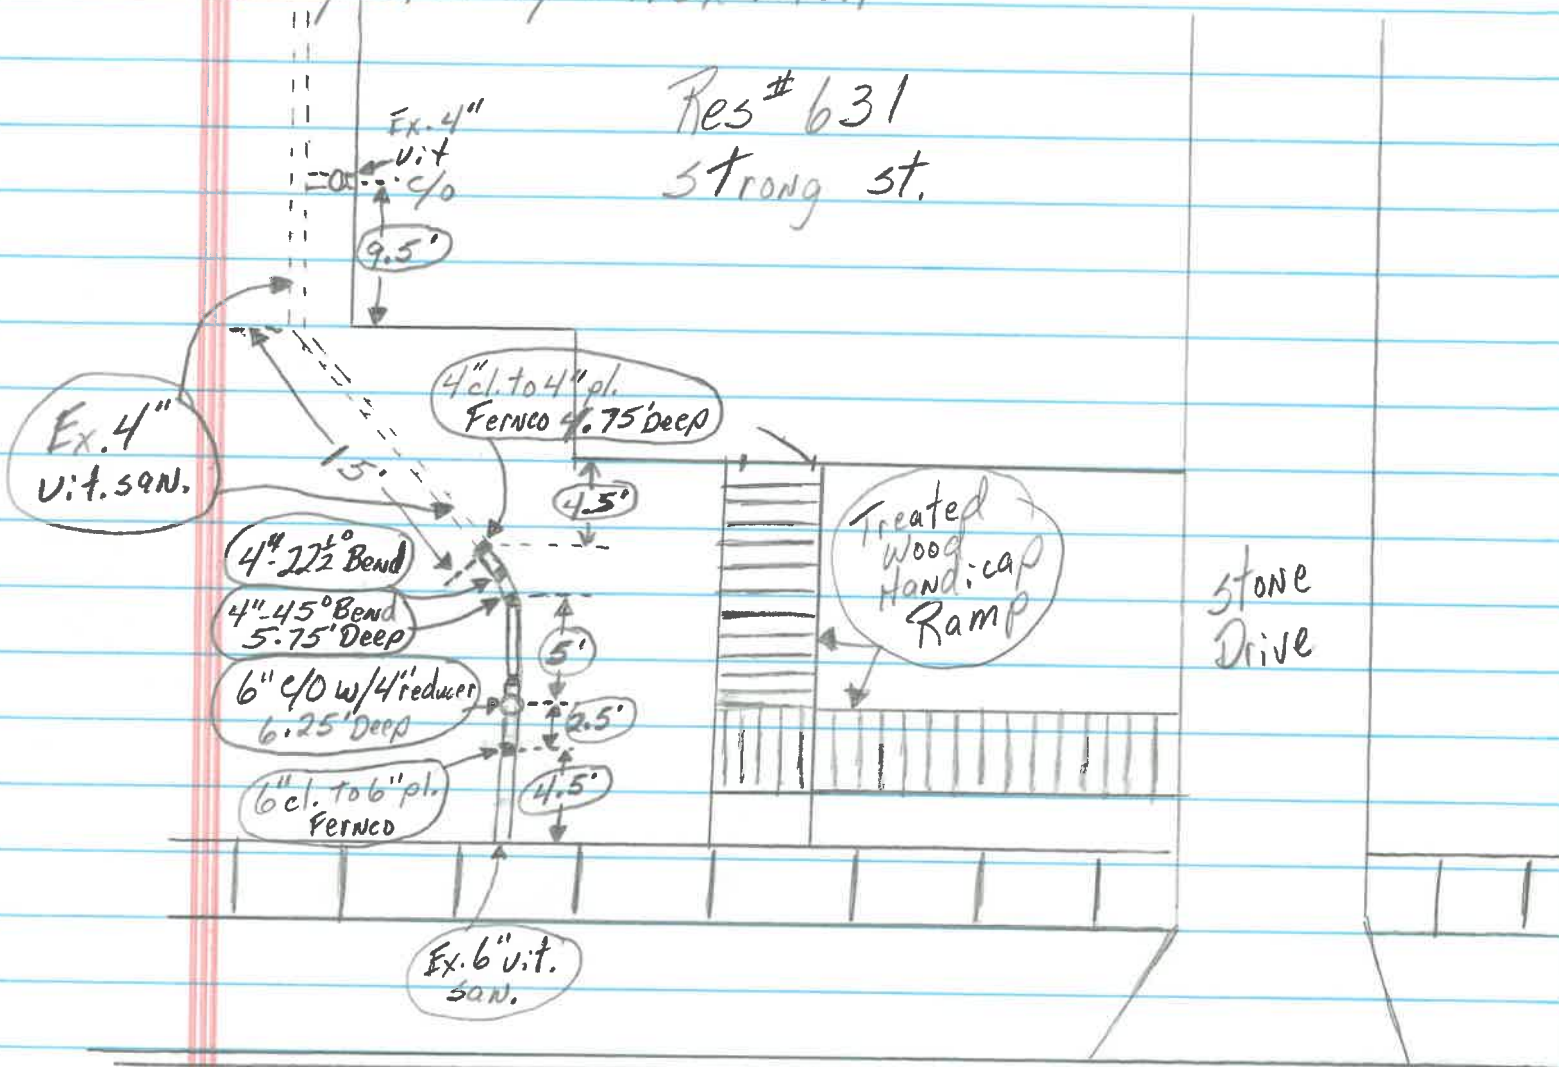 Res# 631
Strong St.
Ex. 4"
vit
c/o
9.5'
4" cl. to 4" pl.
Fernco 4.75' Deep
Ex. 4"
vit. san.
15'
4.5'
4"-22½° Bend
4"-45° Bend
5.75' Deep
5'
6" c/o w/4" reducer
6.25' Deep
2.5'
6" cl. to 6" pl.
Fernco
4.5'
Treated
Wood
Handicap
Ramp
Stone
Drive
Ex. 6" vit.
san.